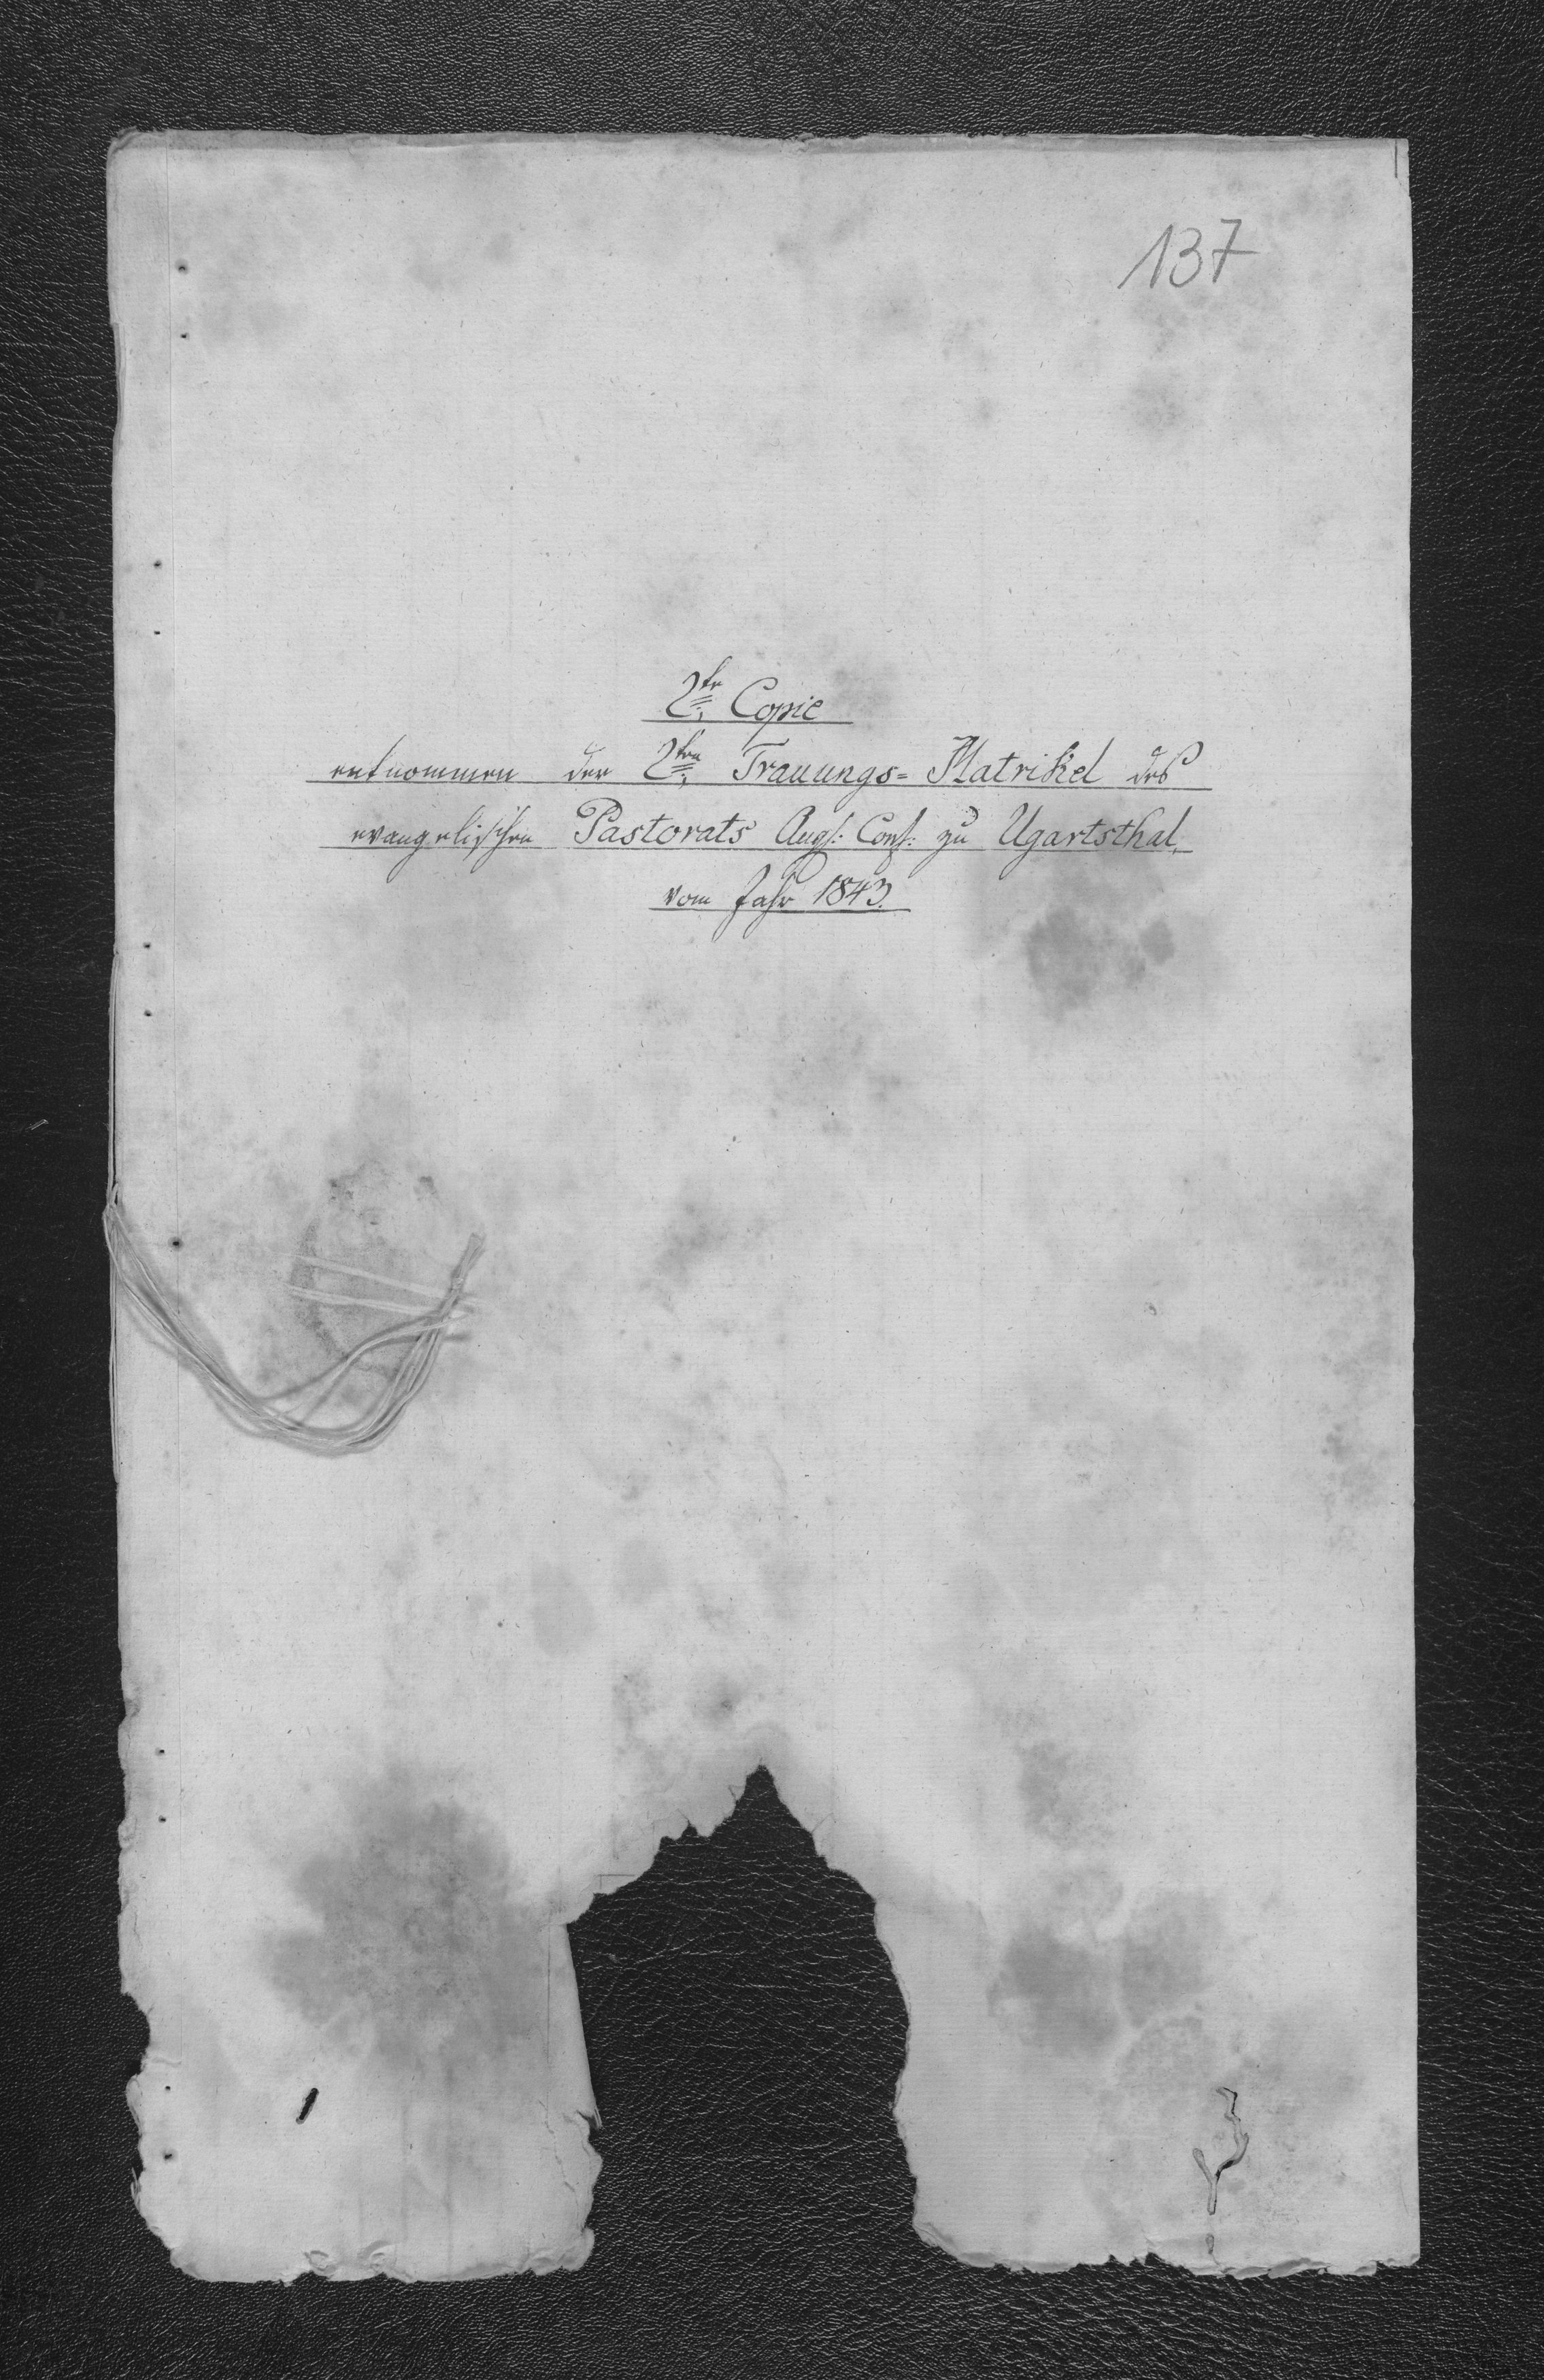 137
2te Copie
entnommen der 2ten Trauungs= Matrikel des
evangelischen Pastorats Augs: Conf: zu Ugartsthal,
vom Jahr 1843.